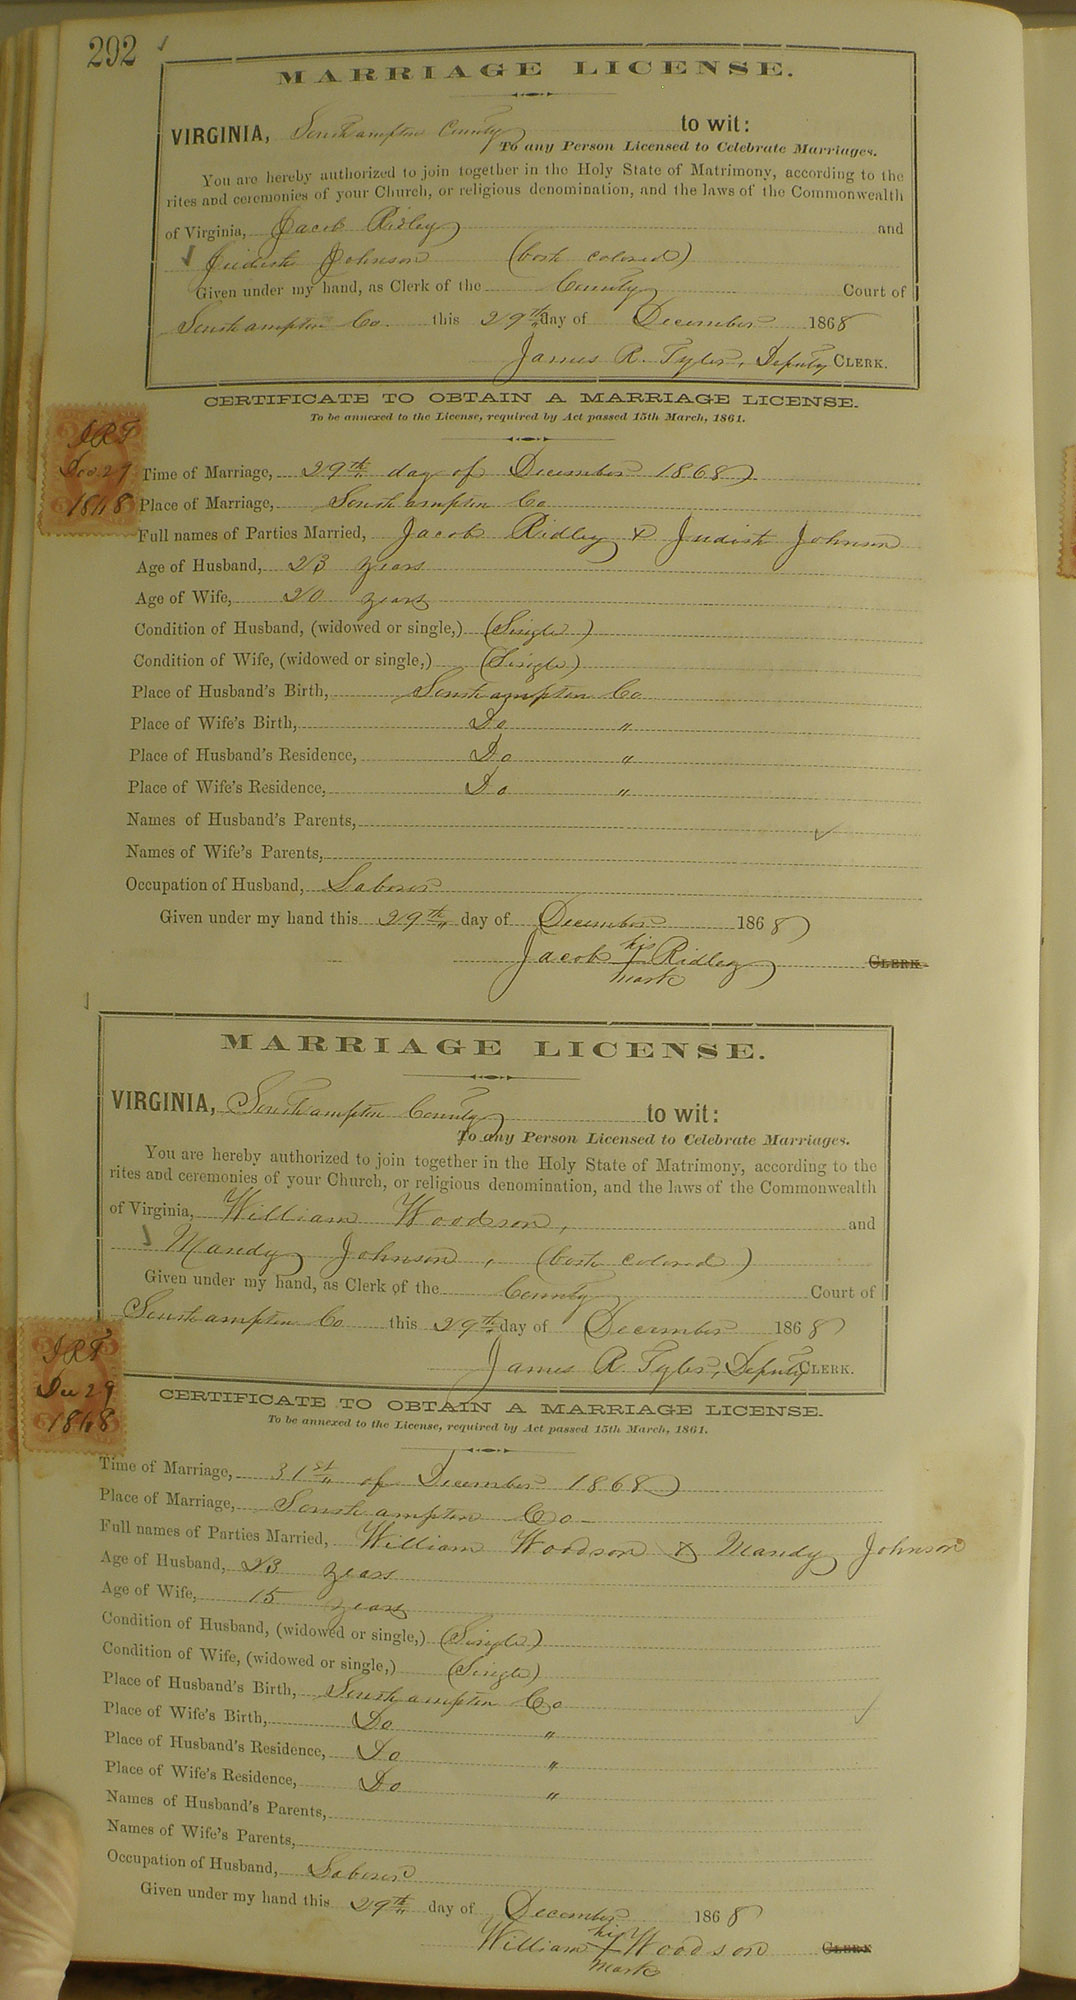 292
MARRIAGE LICENSE.
VIRGINIA, Southampton County to wit:
To any Person Licensed to Celebrate Marriages.
You are hereby authorized to join together in the Holy State of Matrimony, according to the
rites and ceremonies of your Church, or religious denomination, and the laws of the Commonwealth
of Virginia, Jacob Ridley and
Judith Johnson (both colored)
Given under my hand, as Clerk of the County Court of
Southampton Co. this 29th day of December 1868
James R. Tyler, Deputy CLERK.
CERTIFICATE TO OBTAIN A MARRIAGE LICENSE.
To be annexed to the License, required by Act passed 15th March, 1861.
JRT
Dec 29
1868
Time of Marriage, 29th day of December 1868
Place of Marriage, Southampton Co
Full names of Parties Married, Jacob Ridley & Judith Johnson
Age of Husband, 23 years
Age of Wife, 20 years
Condition of Husband, (widowed or single,) (Single)
Condition of Wife, (widowed or single,) (Single)
Place of Husband's Birth, Southampton Co
Place of Wife's Birth, Do "
Place of Husband's Residence, Do "
Place of Wife's Residence, Do "
Names of Husband's Parents,
Names of Wife's Parents,
Occupation of Husband, Laborer
Given under my hand this 29th day of December 1868
Jacob his Ridley CLERK
mark
MARRIAGE LICENSE.
VIRGINIA, Southampton County to wit:
To any Person Licensed to Celebrate Marriages.
You are hereby authorized to join together in the Holy State of Matrimony, according to the
rites and ceremonies of your Church, or religious denomination, and the laws of the Commonwealth
of Virginia, William Woodson, and
Mandy Johnson, (both colored)
Given under my hand, as Clerk of the County Court of
Southampton Co this 29th day of December 1868
James R Tyler, Deputy CLERK.
CERTIFICATE TO OBTAIN A MARRIAGE LICENSE.
To be annexed to the License, required by Act passed 15th March, 1861.
JRT
Dec 29
1868
Time of Marriage, 31st of December 1868
Place of Marriage, Southampton Co
Full names of Parties Married, William Woodson & Mandy Johnson
Age of Husband, 23 years
Age of Wife, 15 years
Condition of Husband, (widowed or single,) (Single)
Condition of Wife, (widowed or single,) (Single)
Place of Husband's Birth, Southampton Co
Place of Wife's Birth, Do "
Place of Husband's Residence, Do "
Place of Wife's Residence, Do "
Names of Husband's Parents,
Names of Wife's Parents,
Occupation of Husband, Laborer
Given under my hand this 29th day of December 1868
William his Woodson CLERK
mark